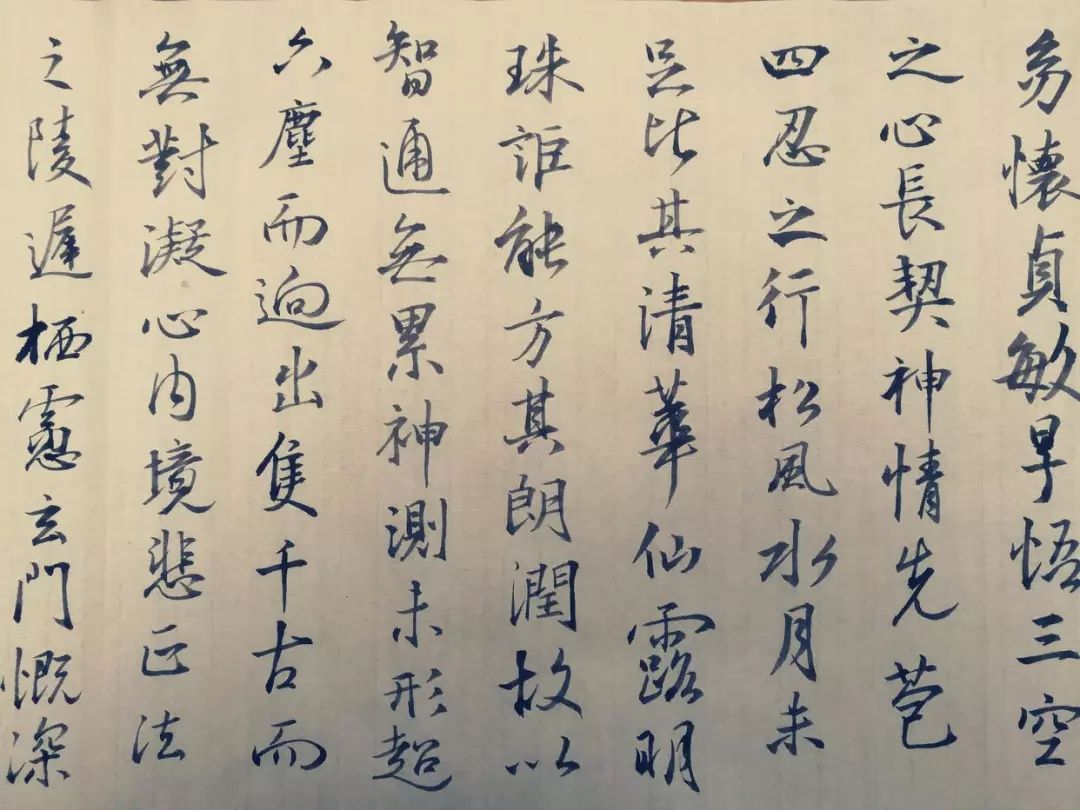 幼懷貞敏早悟三空
之心長契神情先苞
四忍之行松風水月未
足比其清華仙露明
珠詎能方其朗潤故以
智通無累神測未形超
六塵而迥出隻千古而
無對凝心內境悲正法
之陵遲栖慮玄門慨深